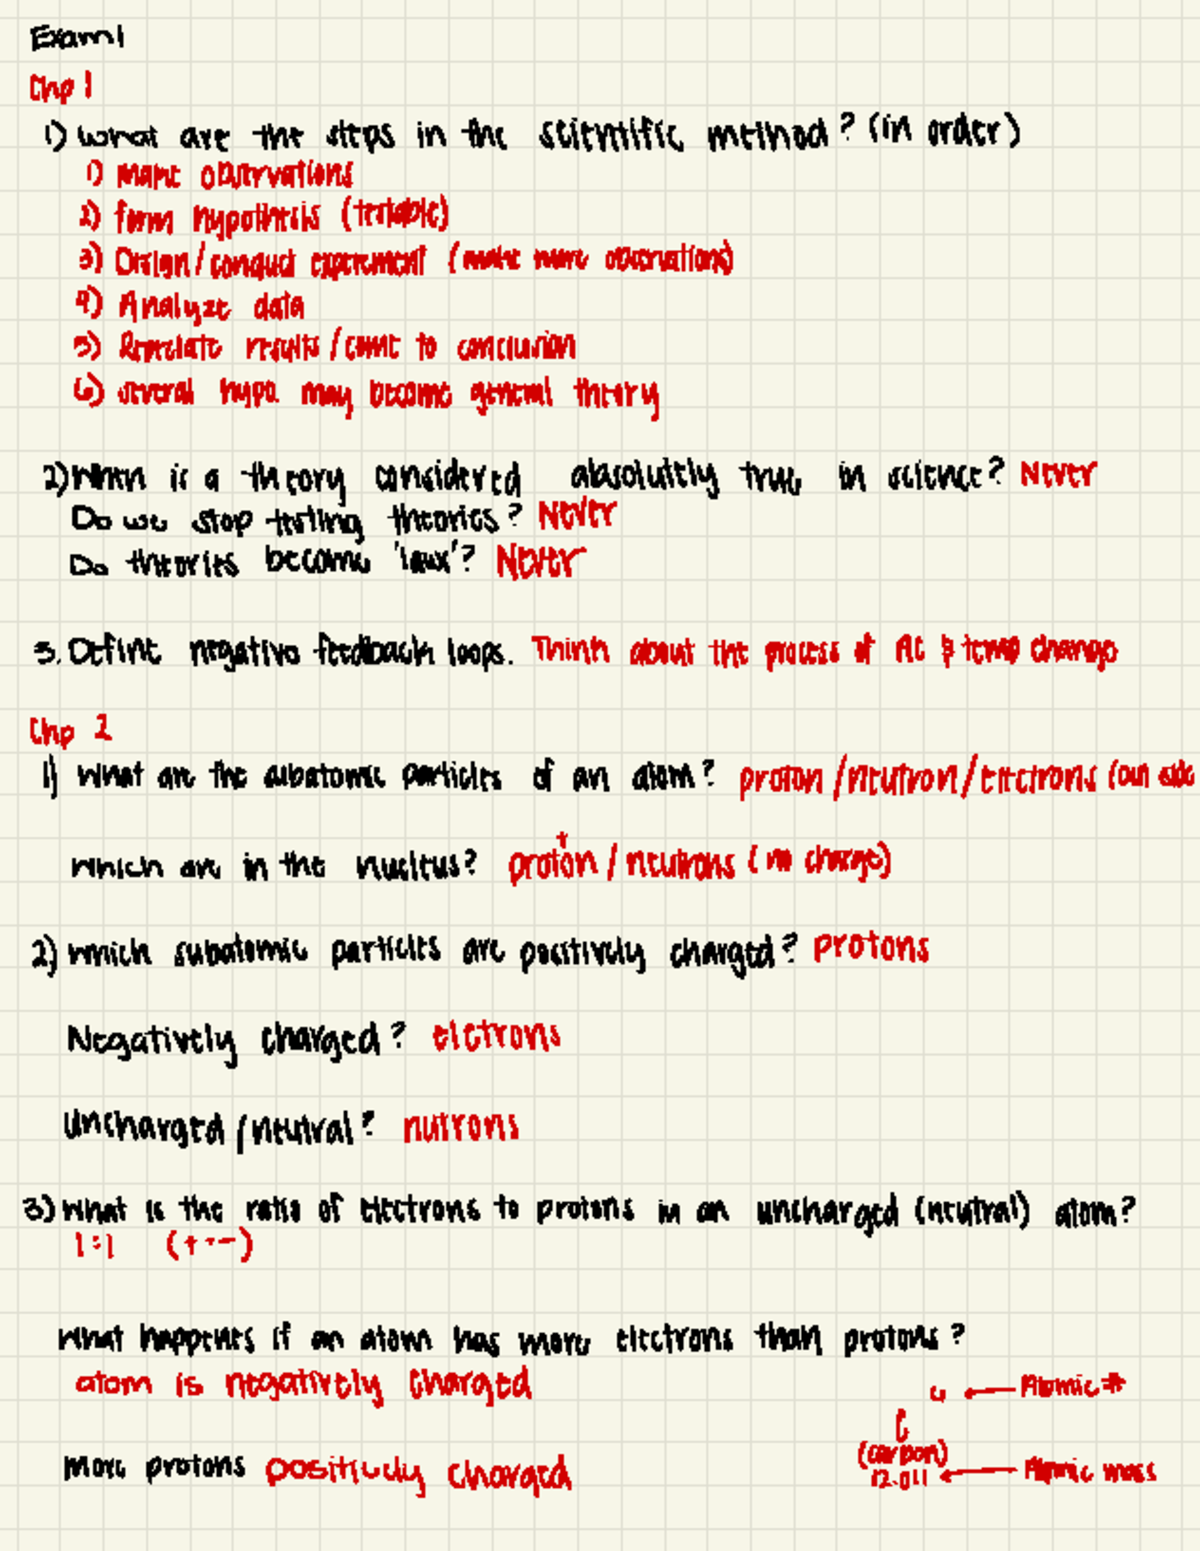 Exam 1
Chp 1
1) What are the steps in the scientific method? (in order)
1) make observations
2) form hypothesis (testable)
3) Design/conduct experement (make more observations)
4) Analyze data
5) results/come to conclusion
6) several hypo. may become general theory
2) When is a theory considered absolutely true in science? Never
Do we stop testing theories? Never
Do theories become 'laws'? Never
3. Define negative feedback loops. Think about the process of AC & temp change
Chp 2
1) What are the subatomic particles of an atom? proton/neutron/electrons (out side
Which are in the nucleus? proton+ / neutrons (no charge)
2) which subatomic particles are positively charged? protons
Negatively charged? elctrons
Uncharged/neutral? nutrons
3) What is the ratio of electrons to protons in an uncharged (neutral) atom?
1:1 (+ -- -)
What happenes if an atom has more electrons than protons?
atom is negatively charged
6 ← Atomic #
C
(carbon)
more protons positively charged
12.011 ← Atomic mass